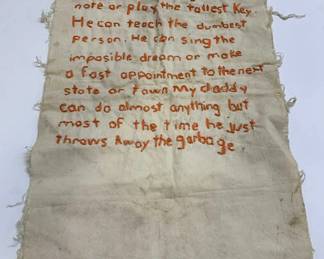 note or play the tallest Key.
He can teach the dumbest
person. He can sing the
imposible dream or make
a fast appointment to the next
state or town My daddy
can do almost anything but
most of the time he just
throws Away the garbage